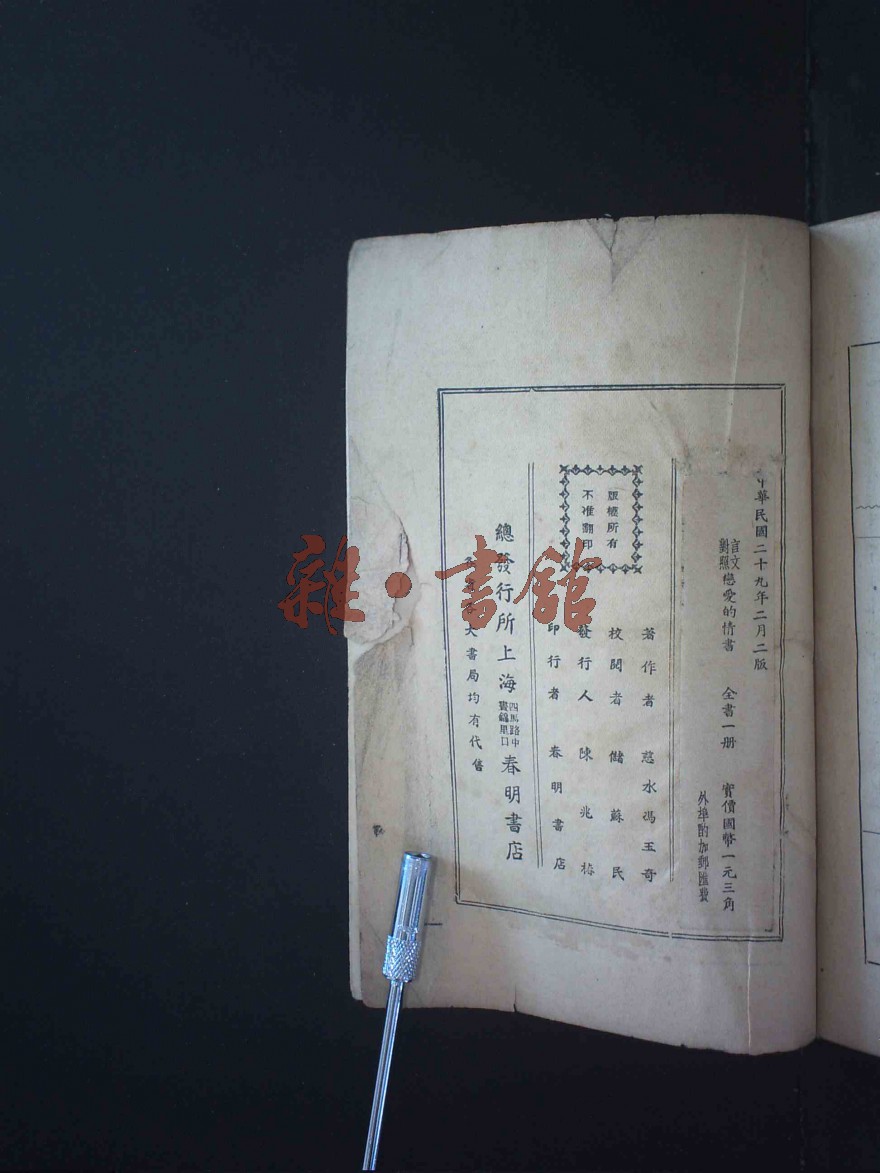 中華民國二十九年二月二版
言文對照 戀愛的情書 全書一册
實價國幣一元三角
外埠酌加郵匯費
著作者 慈水馮玉奇
校閱者 儲蘇民
發行人 陳兆椿
印行者 春明書店
版權所有
不准翻印
總發行所上海四馬路中晝錦里口春明書店
大書局均有代售
雜·書館